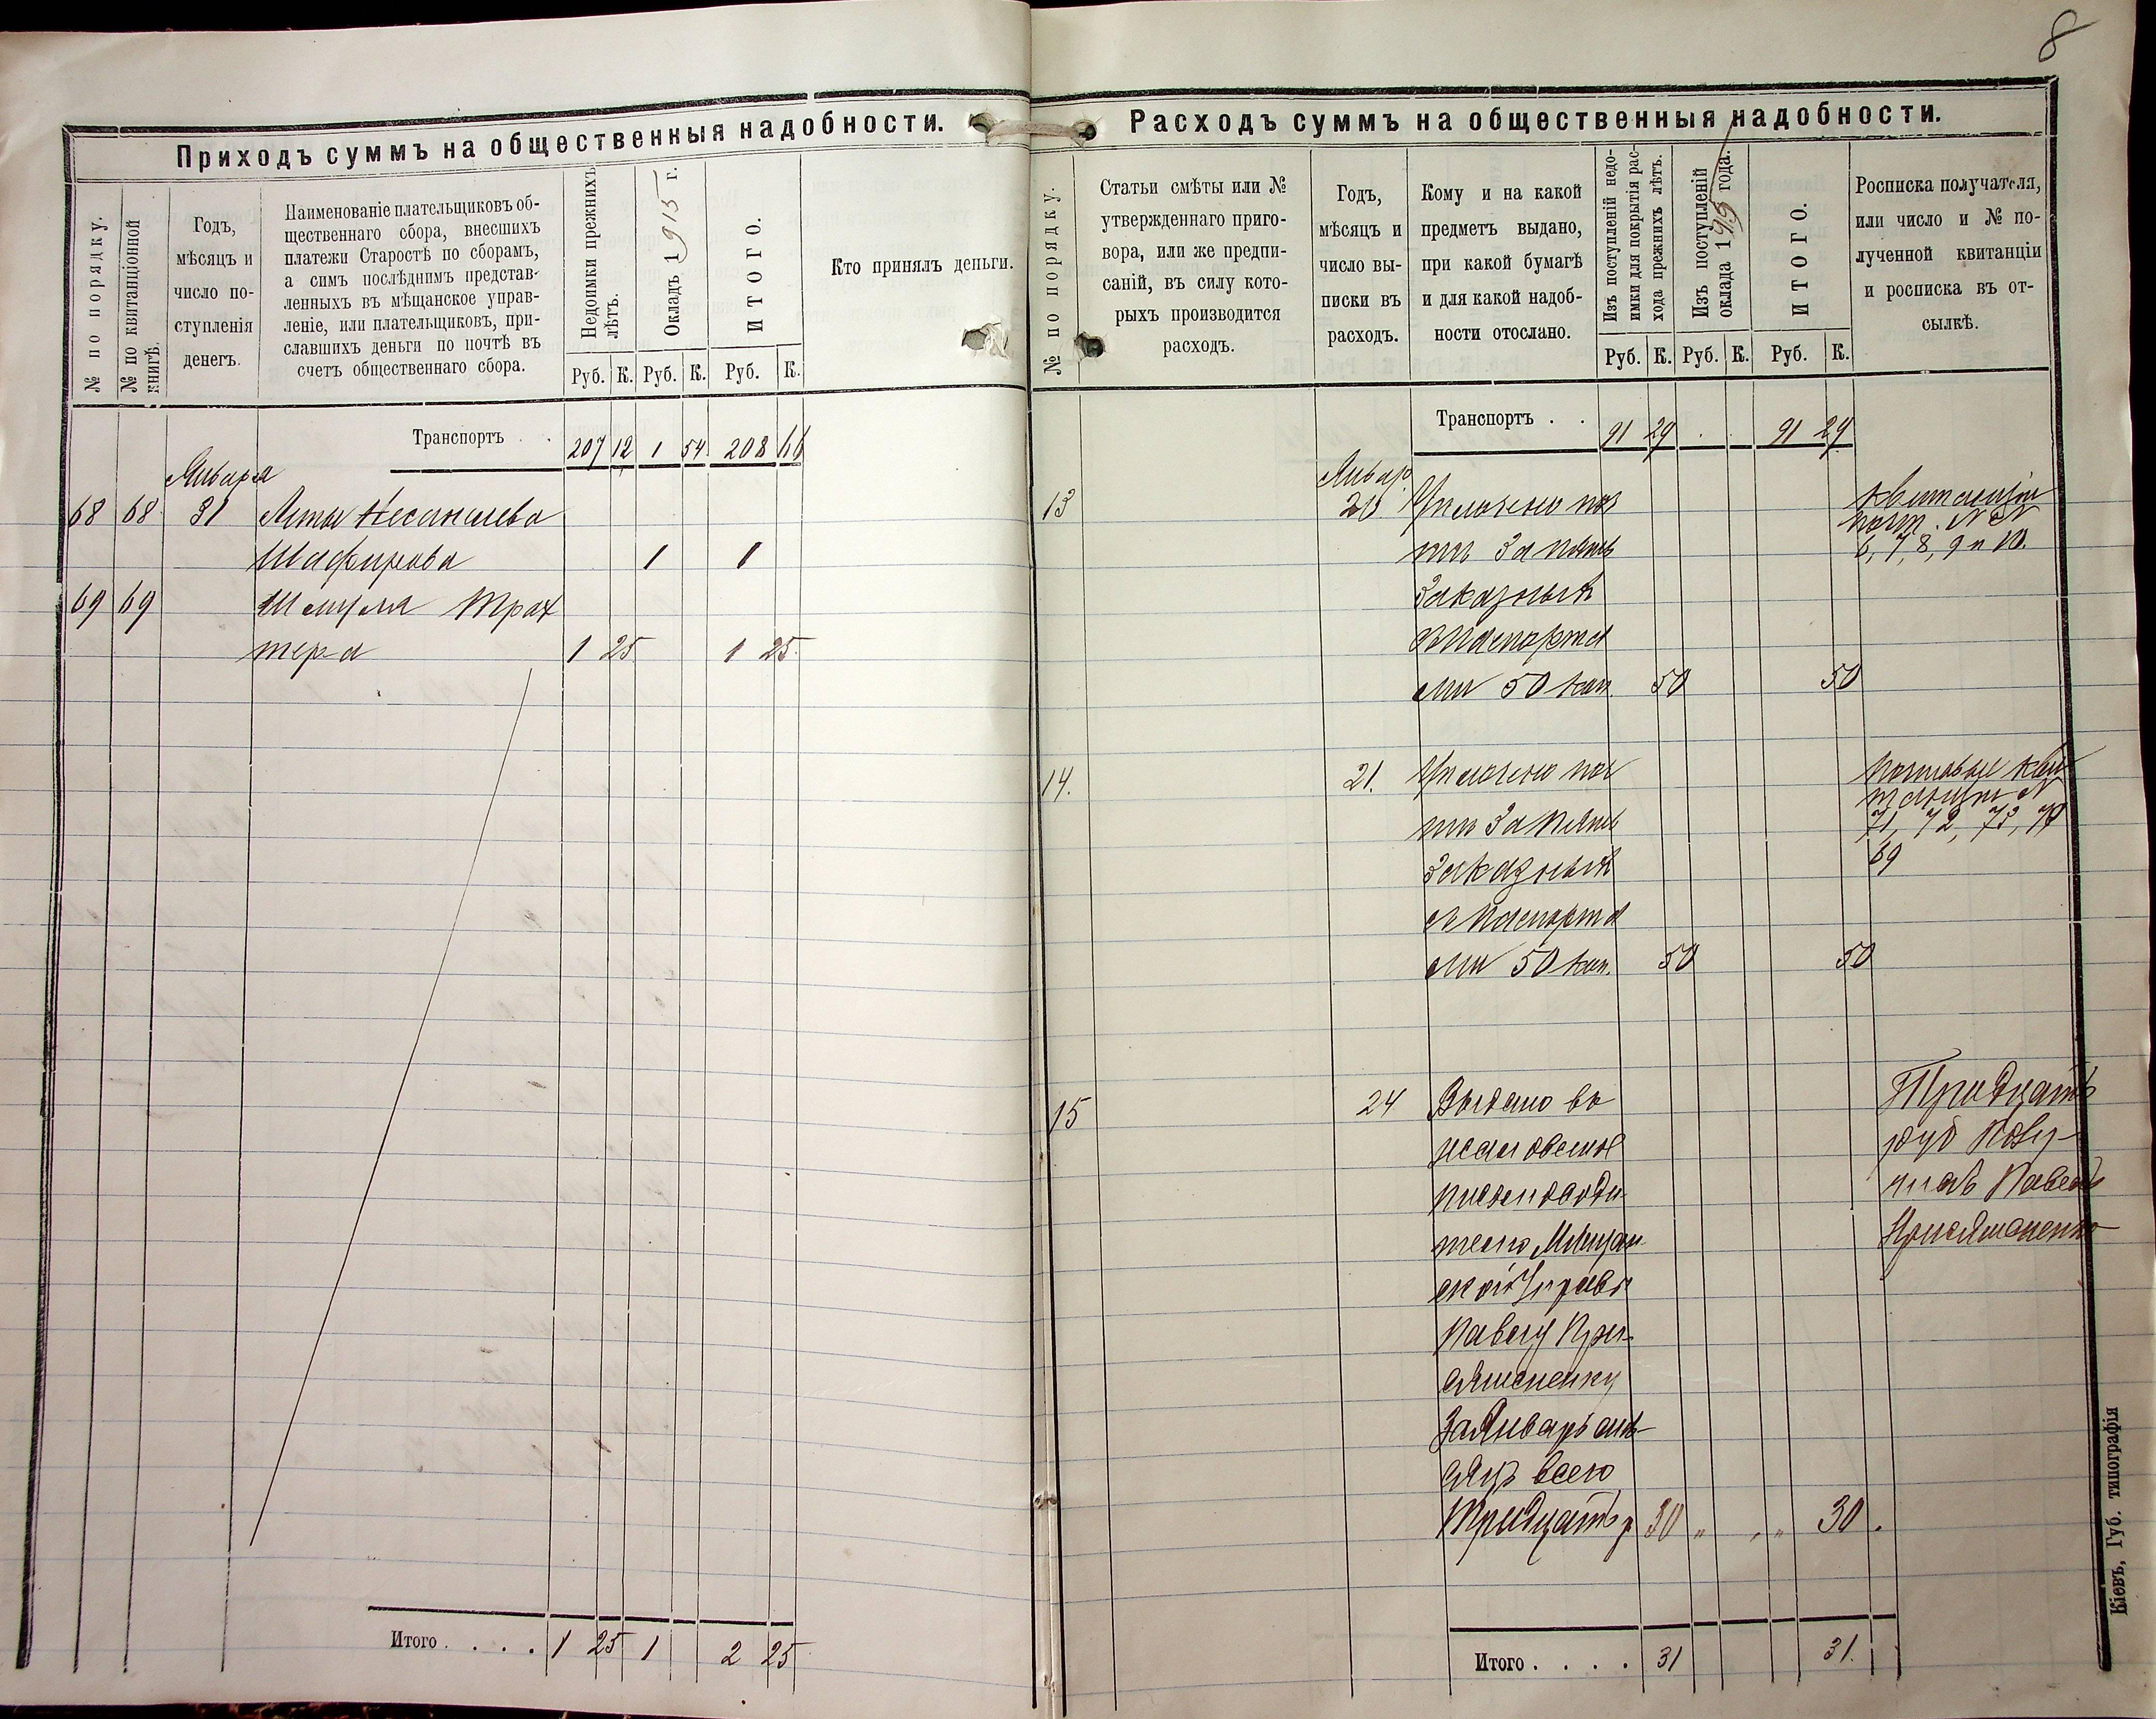 8
Приходъ суммъ на общественныя надобности.
№ по порядку.
№ по квитанціонной
книгѣ.
Годъ,
мѣсяцъ и
число по-
ступленія
денегъ.
Наименованіе плательщиковъ об-
щественнаго сбора, внесшихъ
платежи Старостѣ по сборамъ,
а симъ послѣднимъ представ-
ленныхъ въ мѣщанское управ-
леніе, или плательщиковъ, при-
славшихъ деньги по почтѣ въ
счетъ общественнаго сбора.
Недоимки прежнихъ
лѣтъ.
Окладъ 1915 г.
ИТОГО.
Кто принялъ деньги.
Руб. К. Руб. К. Руб. К.
Транспортъ . . 207 12 1 54 208 66
Января
68 68 31
Шафирова 1 1
69 69 Шмуля Трах
тера 1 25 1 25
Итого . . . . 1 25 1 2 25
Расходъ суммъ на общественныя надобности.
№ по порядку.
Статьи смѣты или №
утвержденнаго приго-
вора, или же предпи-
саній, въ силу кото-
рыхъ производится
расходъ.
Годъ,
мѣсяцъ и
число вы-
писки въ
расходъ.
Кому и на какой
предметъ выдано,
при какой бумагѣ
и для какой надоб-
ности отослано.
Изъ поступленій недо-
имки для покрытія рас-
хода прежнихъ лѣтъ.
Изъ поступленій
оклада 1915 года.
ИТОГО.
Росписка получателя,
или число и № по-
лученной квитанціи
и росписка въ от-
сылкѣ.
Руб. К. Руб. К. Руб. К.
Транспортъ . . 91 29 . . 91 29
Январ
13 20 Уплочено поч
ти за пять
заказныхъ
съ паспорта
ми 50 коп. 50 50
Квитанціи
почт. №№
6, 7, 8, 9 и 10.
14. 21. Уплочено поч
ти за пять
заказныхъ
съ паспорта
ми 50 коп. 50 50
Почтовые кви
танціи №
71, 72, 73, 70
69
15 24 Выдано въ
жалованье
письмоводи
телю Мѣщан
ской Управы
Павлу При-
сяжненку
за Январь мѣ-
сяцъ всего
Тридцать р 30 „ „ „ 30 .
Тридцать
руб полу-
чилъ Павелъ
Присяжненко
Итого . . . . 31 31.
Кіевъ, Губ. типографія